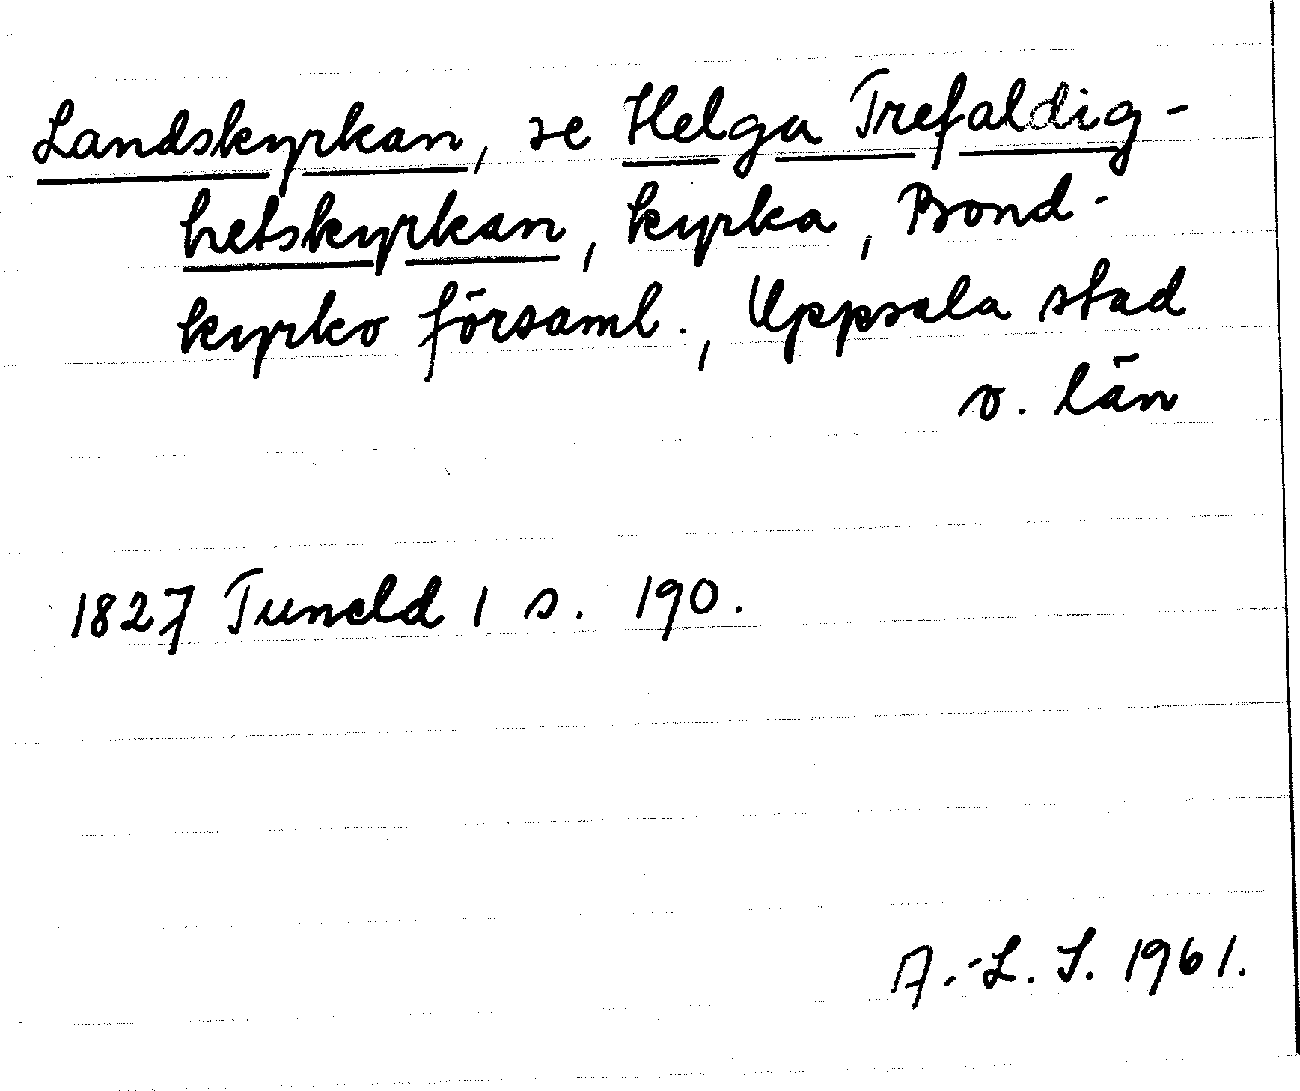 Landskyrkan, se Helga Trefaldig-
hetskyrkan, kyrka, Bond-
kyrko församl., Uppsala stad
o. län
1827 Tuneld 1 s. 190.
A.-L. S. 1961.